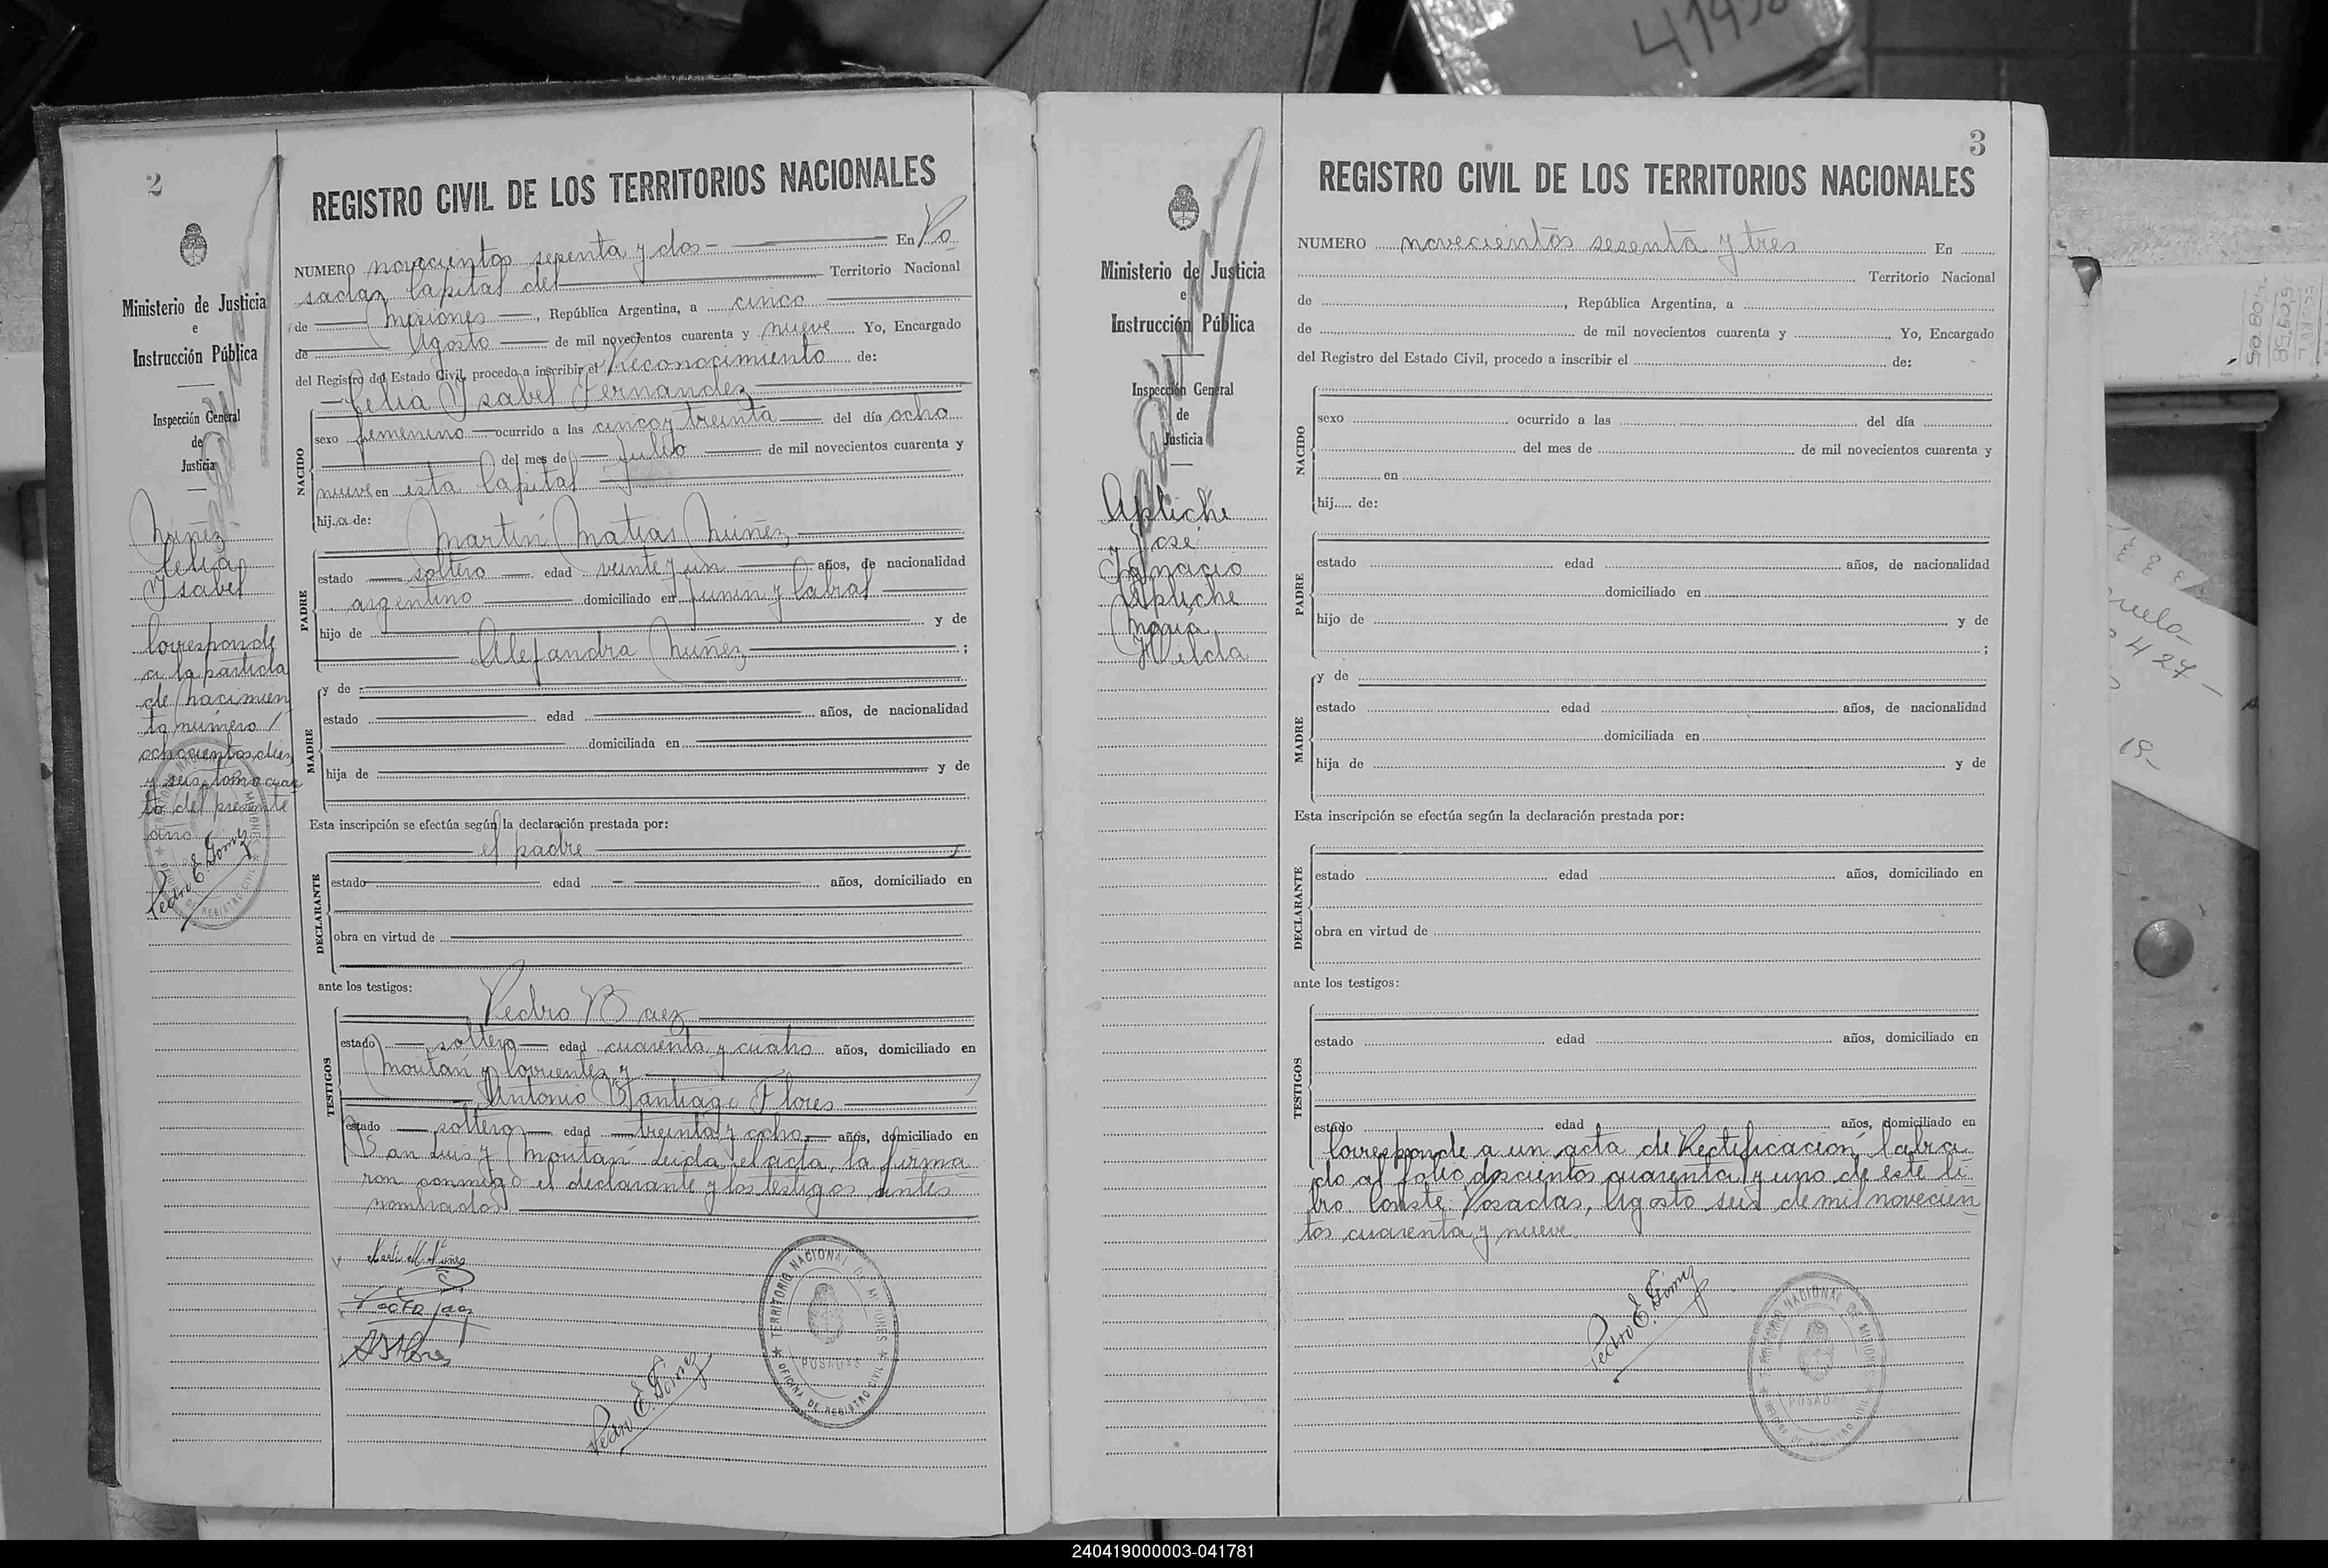 41498
2
Ministerio de Justicia
e
Instrucción Pública
Inspección General
de
Justicia
Nuñez
Celia
Ysabel
Corresponde
a la partida
de nacimien
to número
ochocientos diez
y seis tomo cuar
to del presente
año
Pedro E. Gómez
REGISTRO CIVIL DE LOS TERRITORIOS NACIONALES
NUMERO novecientos sesenta y dos - En Po
sadas Capital del Territorio Nacional
de Misiones, República Argentina, a cinco
de Agosto de mil novecientos cuarenta y nueve Yo, Encargado
del Registro del Estado Civil, procedo a inscribir el Reconocimiento de:
Celia Ysabel Fernandez
NACIDO
sexo femenino ocurrido a las cinco y treinta del día ocho
del mes de Julio de mil novecientos cuarenta y
nueve en esta Capital
hija de:
Martín Matias Nuñez
PADRE
estado soltero edad veinte y un años, de nacionalidad
argentino domiciliado en Junin y Cabral
hijo de y de
Alejandra Nuñez ;
MADRE
y de
estado edad años, de nacionalidad
domiciliada en
hija de y de
Esta inscripción se efectúa según la declaración prestada por:
el padre
DECLARANTE
estado edad años, domiciliado en
obra en virtud de
ante los testigos:
Pedro Baez
TESTIGOS
estado soltero edad cuarenta y cuatro años, domiciliado en
Moritán y Corrientes y
Antonio Santiago Flores
estado soltero edad treinta y ocho años, domiciliado en
San Luis y Moritan Leida el acta, la firma
ron conmigo el declarante y los testigos antes
nombrados
Pedro E. Gómez
TERRITORIO NACIONAL DE MISIONES
POSADAS
OFICINA DE REGISTRO CIVIL
3
Ministerio de Justicia
e
Instrucción Pública
Inspección General
de
Justicia
Apliche
José
Ignacio
y Apliche
María
Hilda
REGISTRO CIVIL DE LOS TERRITORIOS NACIONALES
NUMERO novecientos sesenta y tres En
Territorio Nacional
de , República Argentina, a
de de mil novecientos cuarenta y , Yo, Encargado
del Registro del Estado Civil, procedo a inscribir el de:
NACIDO
sexo ocurrido a las del día
del mes de de mil novecientos cuarenta y
en
hij..... de:
PADRE
estado edad años, de nacionalidad
domiciliado en
hijo de y de
;
MADRE
y de
estado edad años, de nacionalidad
domiciliada en
hija de y de
Esta inscripción se efectúa según la declaración prestada por:
DECLARANTE
estado edad años, domiciliado en
obra en virtud de
ante los testigos:
TESTIGOS
estado edad años, domiciliado en
estado edad años, domiciliado en
Corresponde a un acta de Rectificación labra
do al folio doscientos cuarenta y uno de este li
bro. Conste: Posadas, Agosto seis de mil novecien
tos cuarenta y nueve.
Pedro E. Gómez
TERRITORIO NACIONAL DE MISIONES
POSADAS
OFICINA DE REGISTRO CIVIL
240419000003-041781